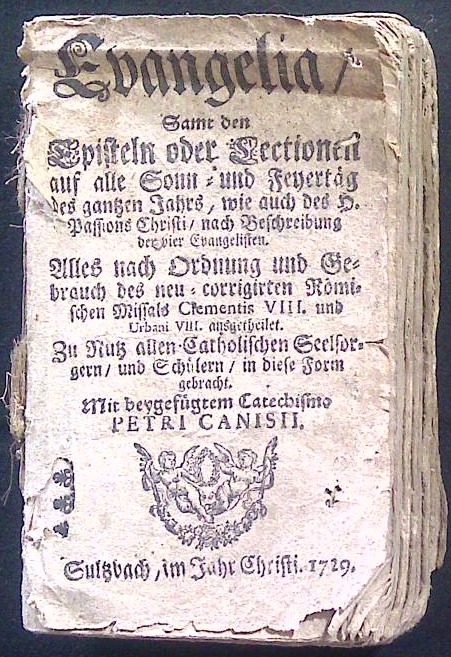 Evangelia/
Samt den
Episteln oder Lectionen
auf alle Sonn- und Feyertäg
des gantzen Jahrs, wie auch des H.
Passions Christi/ nach Beschreibung
der vier Evangelisten.
Alles nach Ordnung und Ge-
brauch des neu-corrigirten Römi-
schen Missals Clementis VIII. und
Urbani VIII. ausgetheilet.
Zu Nutz allen Catholischen Seelsor-
gern/ und Schülern/ in diese Form
gebracht.
Mit beygefügtem Catechismo
PETRI CANISII.
Sultzbach, im Jahr Christi. 1729.